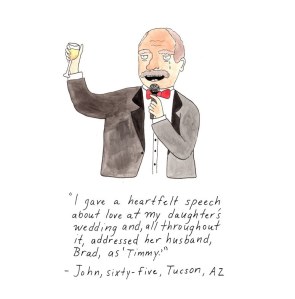 "I gave a heartfelt speech
about love at my daughter's
wedding and, all throughout
it, addressed her husband,
Brad, as 'Timmy.'"
- John, sixty-five, Tucson, AZ